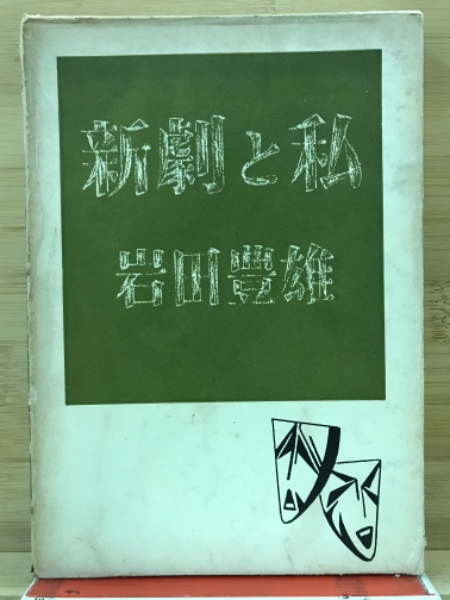 新劇と私
岩田豊雄